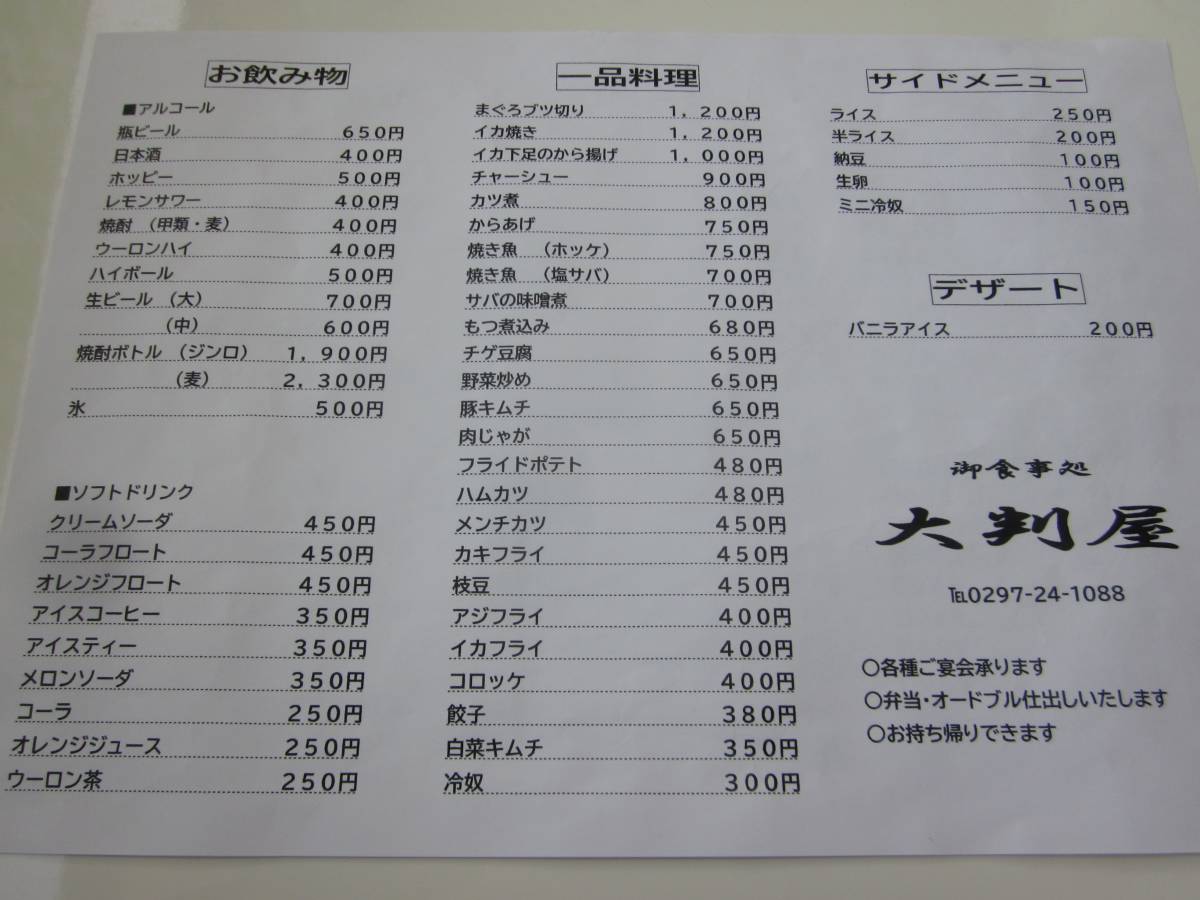 お飲み物
■アルコール
瓶ビール 650円
日本酒 400円
ホッピー 500円
レモンサワー 400円
焼酎 （甲類・麦） 400円
ウーロンハイ 400円
ハイボール 500円
生ビール （大） 700円
（中） 600円
焼酎ボトル （ジンロ） 1，900円
（麦） 2，300円
氷 500円
■ソフトドリンク
クリームソーダ 450円
コーラフロート 450円
オレンジフロート 450円
アイスコーヒー 350円
アイスティー 350円
メロンソーダ 350円
コーラ 250円
オレンジジュース 250円
ウーロン茶 250円
一品料理
まぐろブツ切り 1，200円
イカ焼き 1，200円
イカ下足のから揚げ 1，000円
チャーシュー 900円
カツ煮 800円
からあげ 750円
焼き魚 （ホッケ） 750円
焼き魚 （塩サバ） 700円
サバの味噌煮 700円
もつ煮込み 680円
チゲ豆腐 650円
野菜炒め 650円
豚キムチ 650円
肉じゃが 650円
フライドポテト 480円
ハムカツ 480円
メンチカツ 450円
カキフライ 450円
枝豆 450円
アジフライ 400円
イカフライ 400円
コロッケ 400円
餃子 380円
白菜キムチ 350円
冷奴 300円
サイドメニュー
ライス 250円
半ライス 200円
納豆 100円
生卵 100円
ミニ冷奴 150円
デザート
バニラアイス 200円
御食事処
大判屋
℡0297-24-1088
○各種ご宴会承ります
○弁当・オードブル仕出しいたします
○お持ち帰りできます